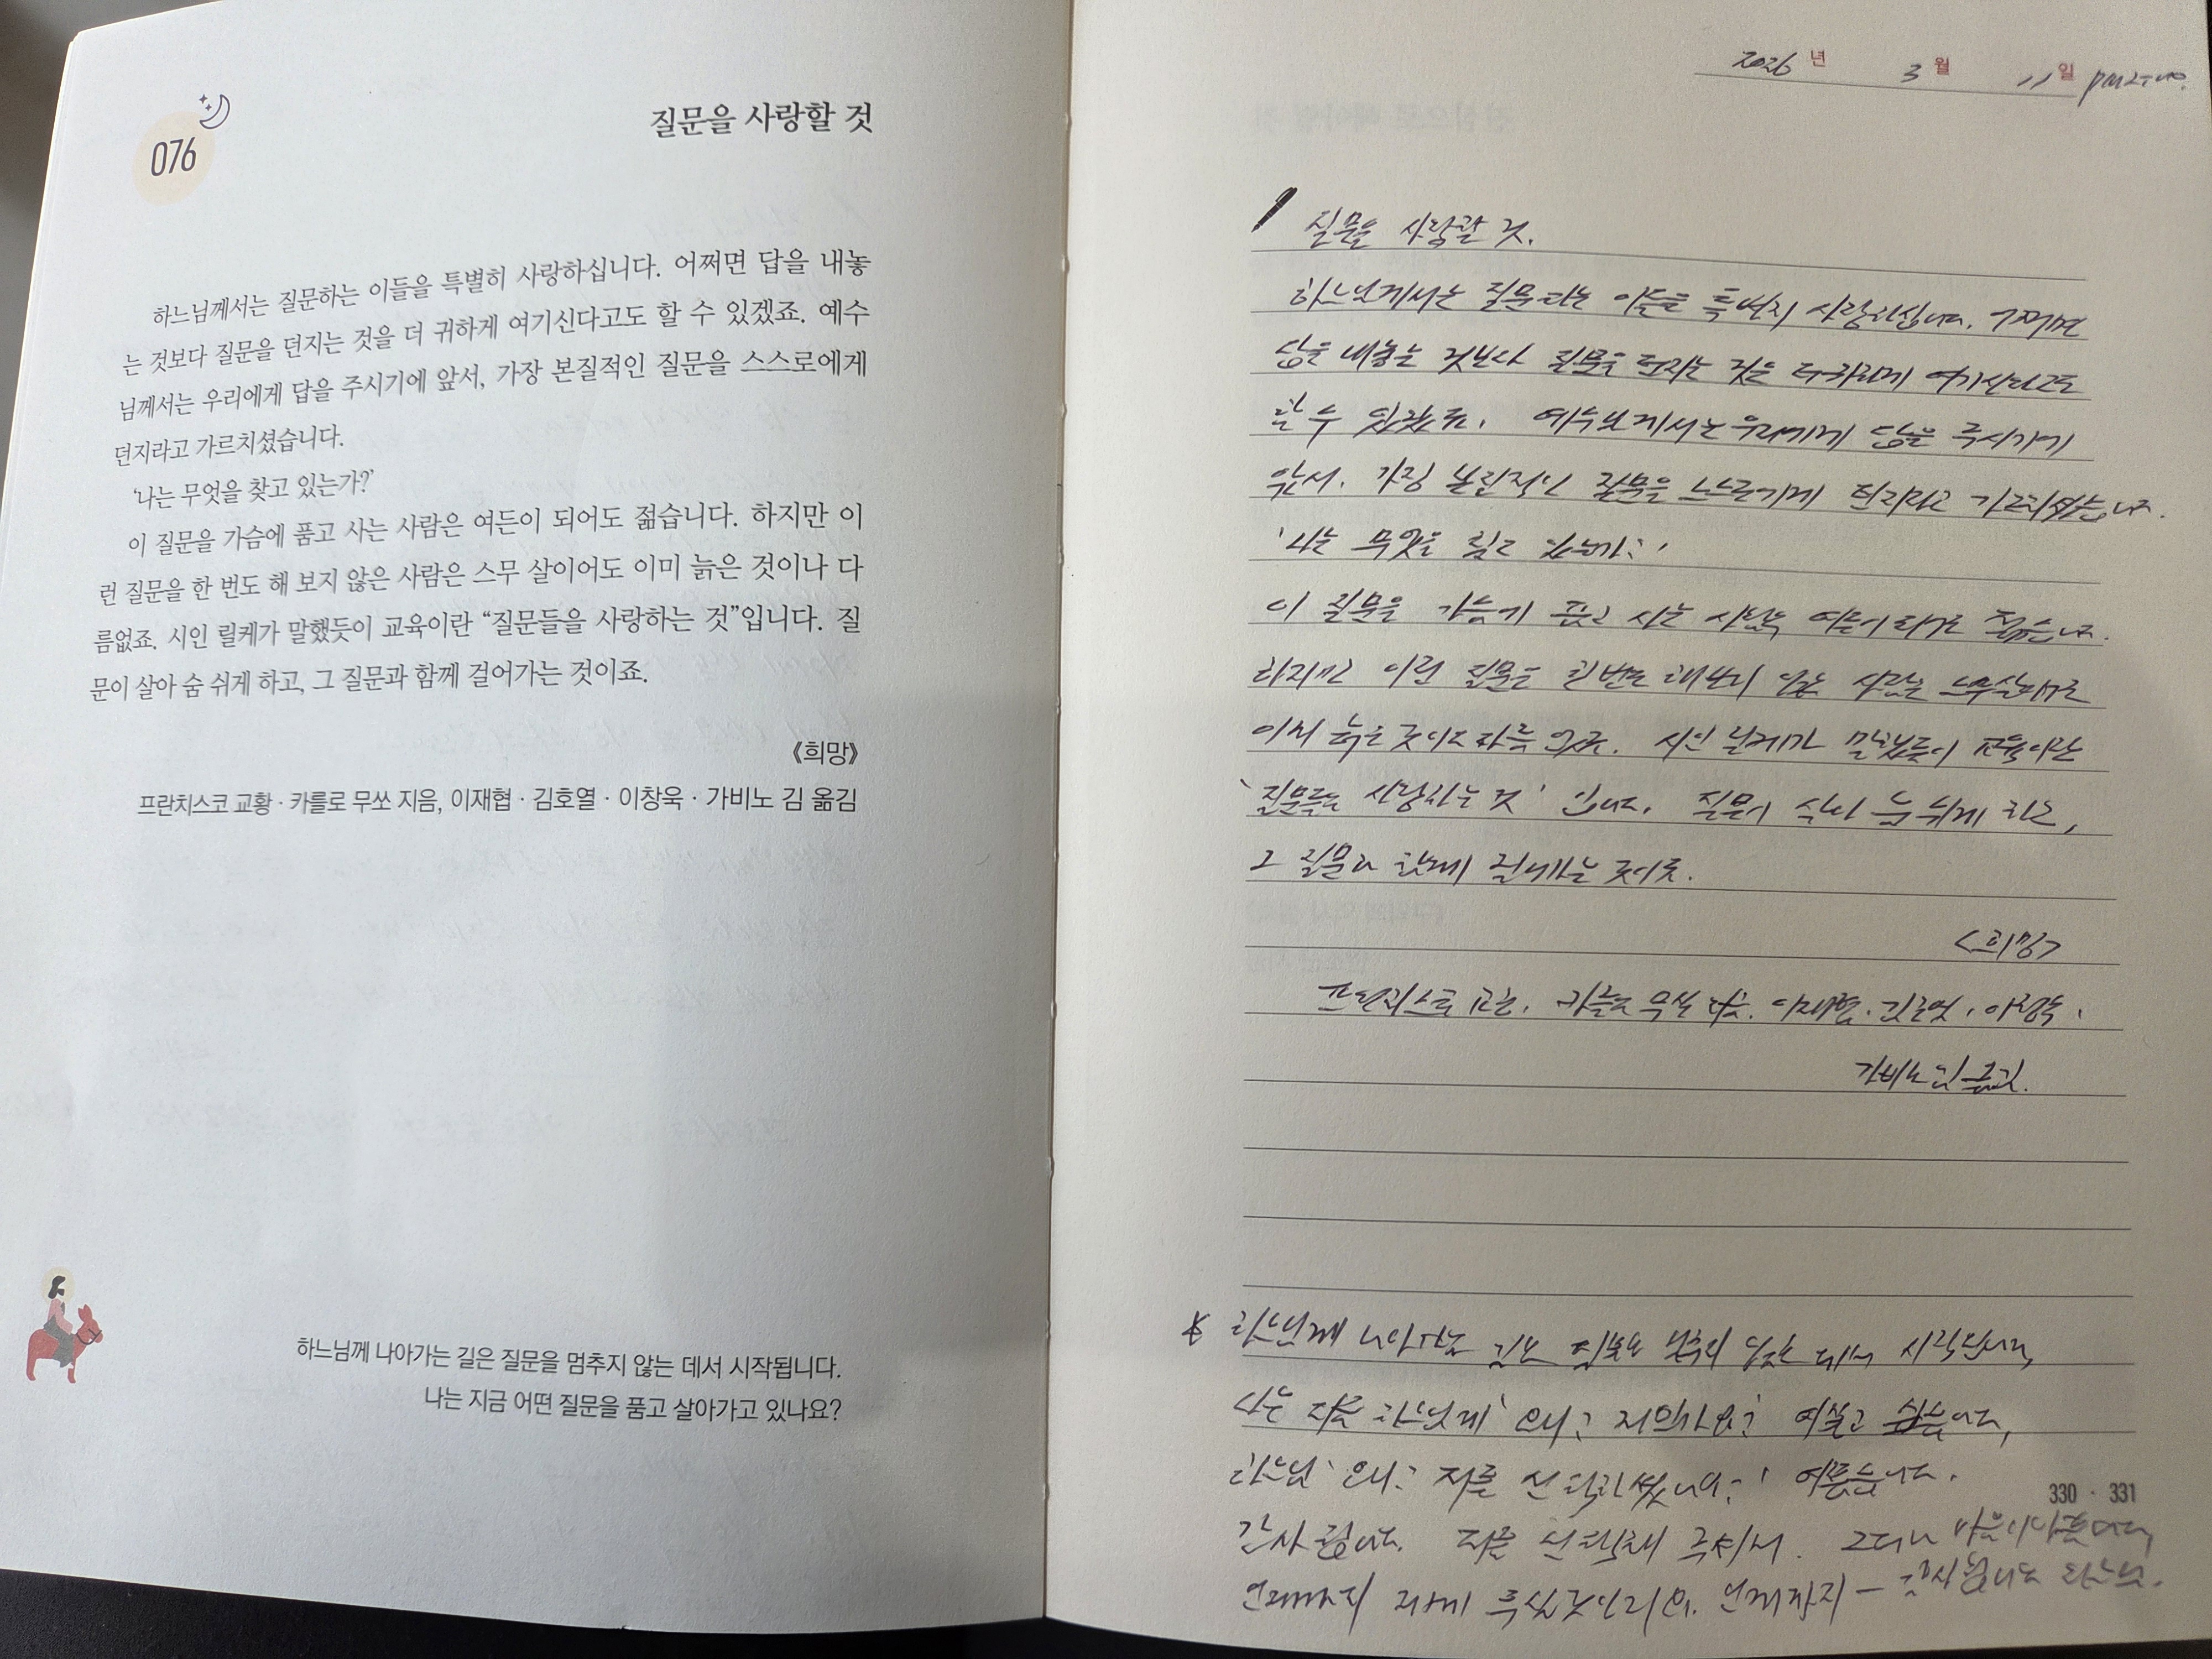 076
질문을 사랑할 것
하느님께서는 질문하는 이들을 특별히 사랑하십니다. 어쩌면 답을 내놓
는 것보다 질문을 던지는 것을 더 귀하게 여기신다고도 할 수 있겠죠. 예수
님께서는 우리에게 답을 주시기에 앞서, 가장 본질적인 질문을 스스로에게
던지라고 가르치셨습니다.
‘나는 무엇을 찾고 있는가?’
이 질문을 가슴에 품고 사는 사람은 여든이 되어도 젊습니다. 하지만 이
런 질문을 한 번도 해 보지 않은 사람은 스무 살이어도 이미 늙은 것이나 다
름없죠. 시인 릴케가 말했듯이 교육이란 “질문들을 사랑하는 것”입니다. 질
문이 살아 숨 쉬게 하고, 그 질문과 함께 걸어가는 것이죠.
《희망》
프란치스코 교황 · 카를로 무쏘 지음, 이재협 · 김호열 · 이창욱 · 가비노 김 옮김
하느님께 나아가는 길은 질문을 멈추지 않는 데서 시작됩니다.
나는 지금 어떤 질문을 품고 살아가고 있나요?
2026년 3월 11일
질문을 사랑할 것.
하느님께서는 질문하는 이들을 특별히 사랑하십니다. 어쩌면
답을 내놓는 것보다 질문을 던지는 것을 더 귀하게 여기신다고도
할 수 있겠죠. 예수님께서는 우리에게 답을 주시기에
앞서. 가장 본질적인 질문을 스스로에게 던지라고 가르치셨습니다.
'나는 무엇을 찾고 있는가?'
이 질문을 가슴에 품고 사는 사람은 여든이 되어도 젊습니다.
하지만 이런 질문을 한번도 해보지 않은 사람은 스무살이어도
이미 늙은 것이나 다름 없죠. 시인 릴케가 말했듯이 교육이란
'질문들을 사랑하는 것' 입니다. 질문이 살아 숨 쉬게 하고,
그 질문과 함께 걸어가는 것이죠.
<희망>
프란치스코 교황. 카를로 무쏘 지음. 이재협. 김호열. 이창욱.
가비노 김 옮김.
* 하느님께 나아가는 길은 질문을 멈추지 않는 데서 시작됩니다,
나는 지금 하느님께 '왜? 저인가요?' 여쭙고 싶습니다,
하느님 '왜? 저를 선택하셨나요?' 여쭙습니다.
감사합니다. 저를 선택해 주셔서. 그러나 마음이
언제까지 저에게 언제까지 — 하느님.
330 · 331